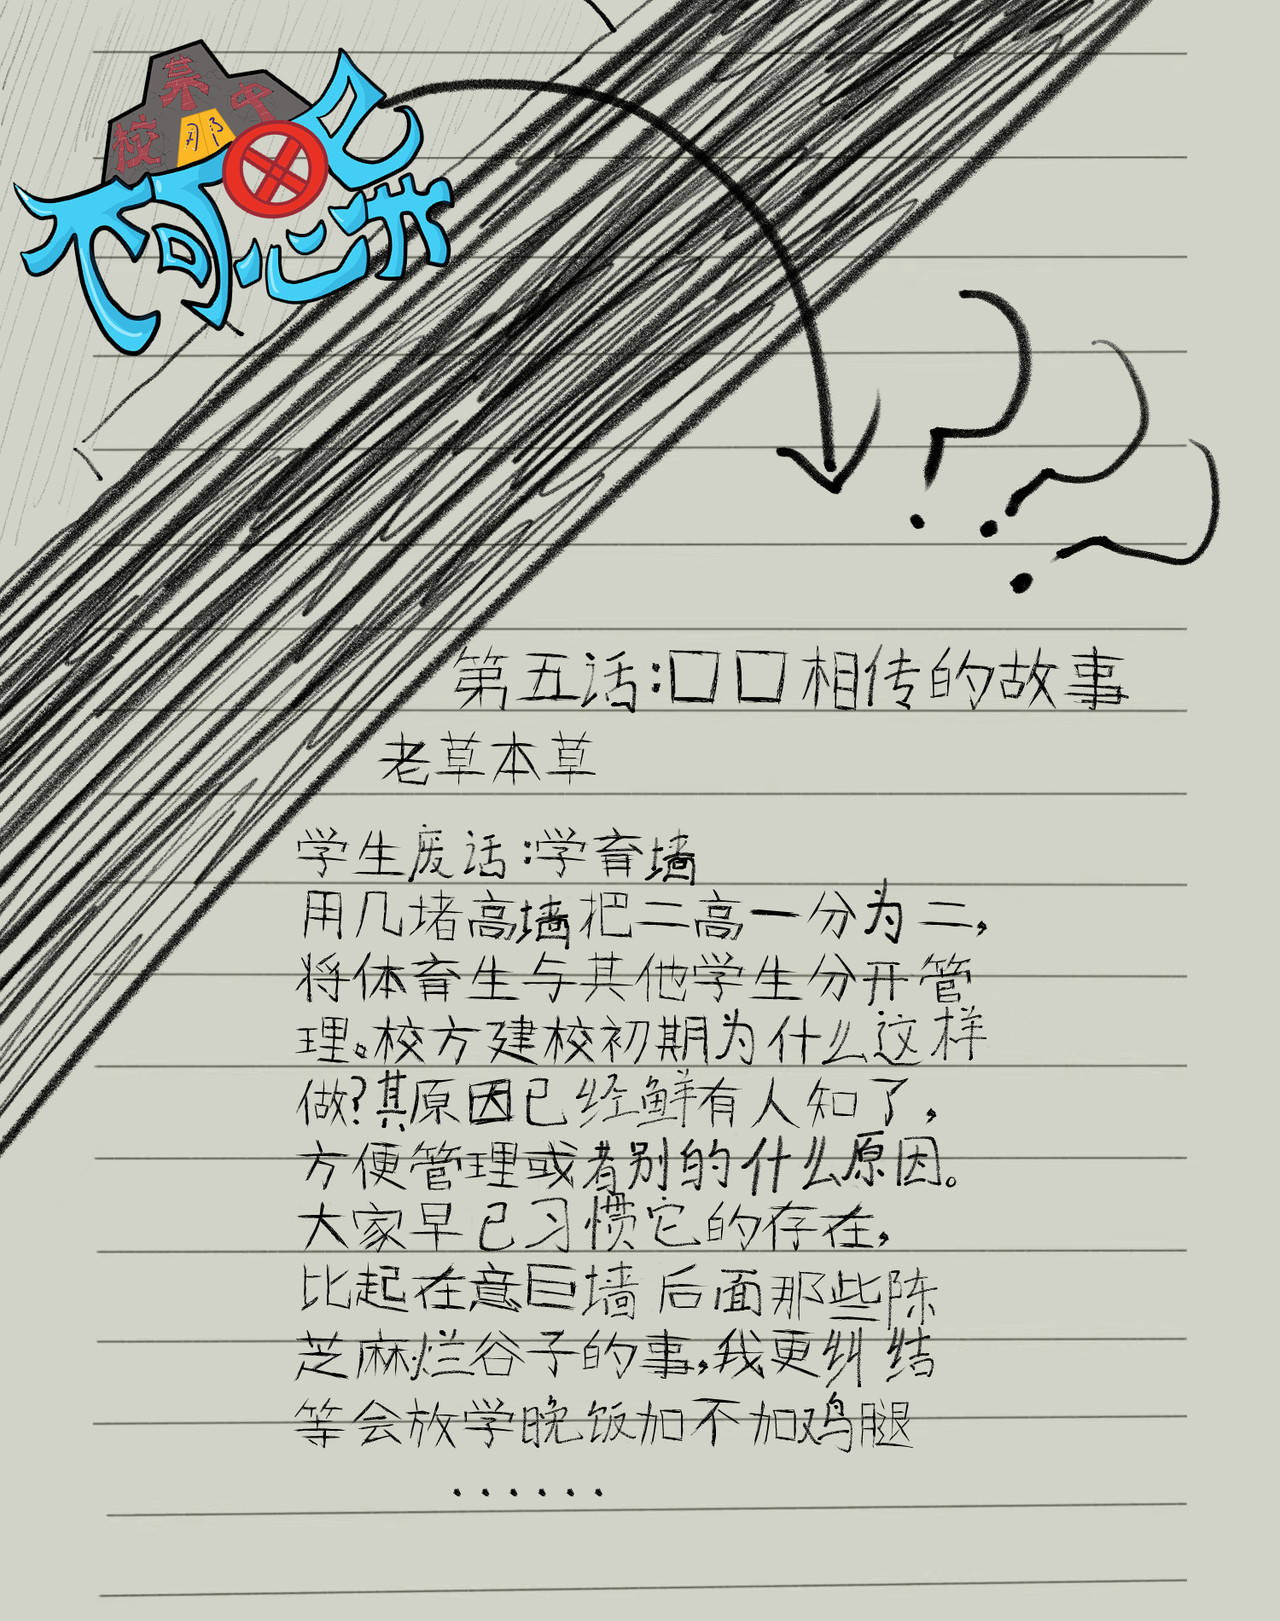 某中
校那
不可
第五话:口口相传的故事
老草本草
学生废话:学育墙
用几堵高墙把二高一分为二,
将体育生与其他学生分开管
理。校方建校初期为什么这样
做?其原因已经鲜有人知了,
方便管理或者别的什么原因。
大家早已习惯它的存在,
比起在意巨墙后面那些陈
芝麻烂谷子的事,我更纠结
等会放学晚饭加不加鸡腿
......